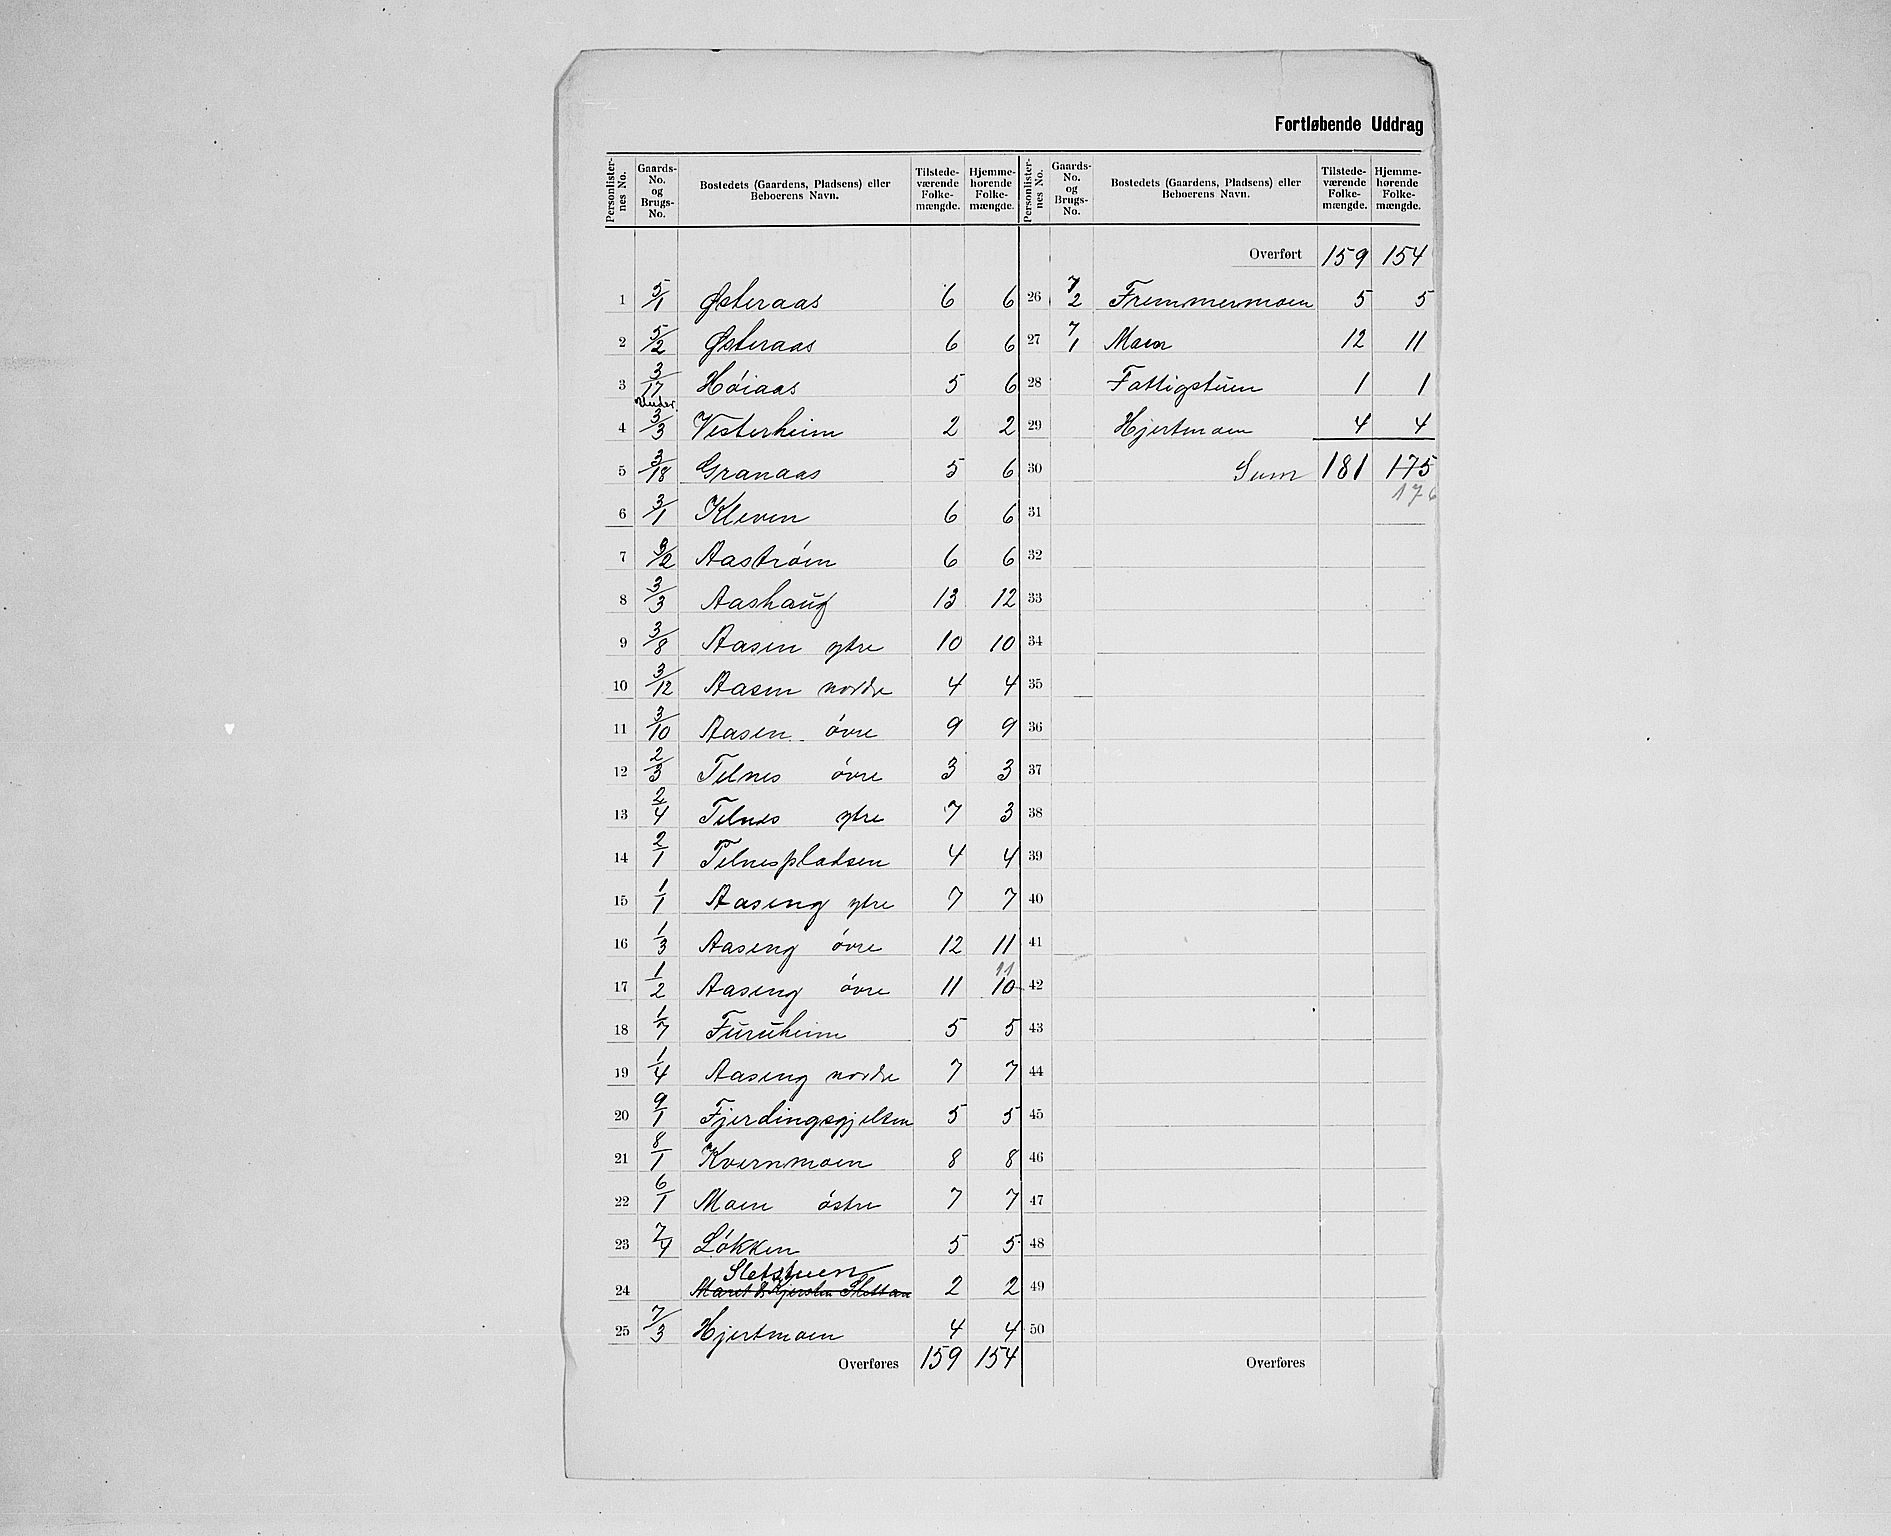 Fortløbende Uddrag
Personlisternes No. Gaards-No. og Brugs-No. Bostedets (Gaardens, Pladsens) eller Beboerens Navn. Tilstedeværende Folkemængde. Hjemmehørende Folkemængde.
1 5/1 Østeraas 6 6
2 5/2 Østeraas 6 6
3 3/17 Høiaas 5 6
4 Under 3/3 Vesterheim 2 2
5 3/18 Granaas 5 6
6 3/1 Kleven 6 6
7 3/2 Aastrøen 6 6
8 3/3 Aashaug 13 12
9 3/8 Aasen ytre 10 10
10 3/12 Aasen nordre 4 4
11 3/10 Aasen øvre 9 9
12 2/3 Telnes øvre 3 3
13 2/4 Telnes ytre 7 3
14 2/1 Telnespladsen 4 4
15 1/1 Aaseng ytre 7 7
16 1/3 Aaseng øvre 12 11
17 1/2 Aaseng øvre 11 10 11
18 1/7 Furuheim 5 5
19 1/4 Aaseng nordre 7 7
20 9/1 Fjerdingsgjelten 5 5
21 8/1 Kvernmoen 8 8
22 6/1 Moen østre 7 7
23 7/4 Løkken 5 5
Sletstuen
24 Marit & Kjersten Slettan 2 2
25 7/3 Hjertmoen 4 4
Overføres 159 154
Personlisternes No. Gaards-No. og Brugs-No. Bostedets (Gaardens, Pladsens) eller Beboerens Navn. Tilstedeværende Folkemængde. Hjemmehørende Folkemængde.
Overført 159 154
26 7/2 Fremmermoen 5 5
27 7/1 Moen 12 11
28 Fattigstuen 1 1
29 Hjertmoen 4 4
30 Sum 181 175
176
31
32
33
34
35
36
37
38
39
40
41
42
43
44
45
46
47
48
49
50
Overføres